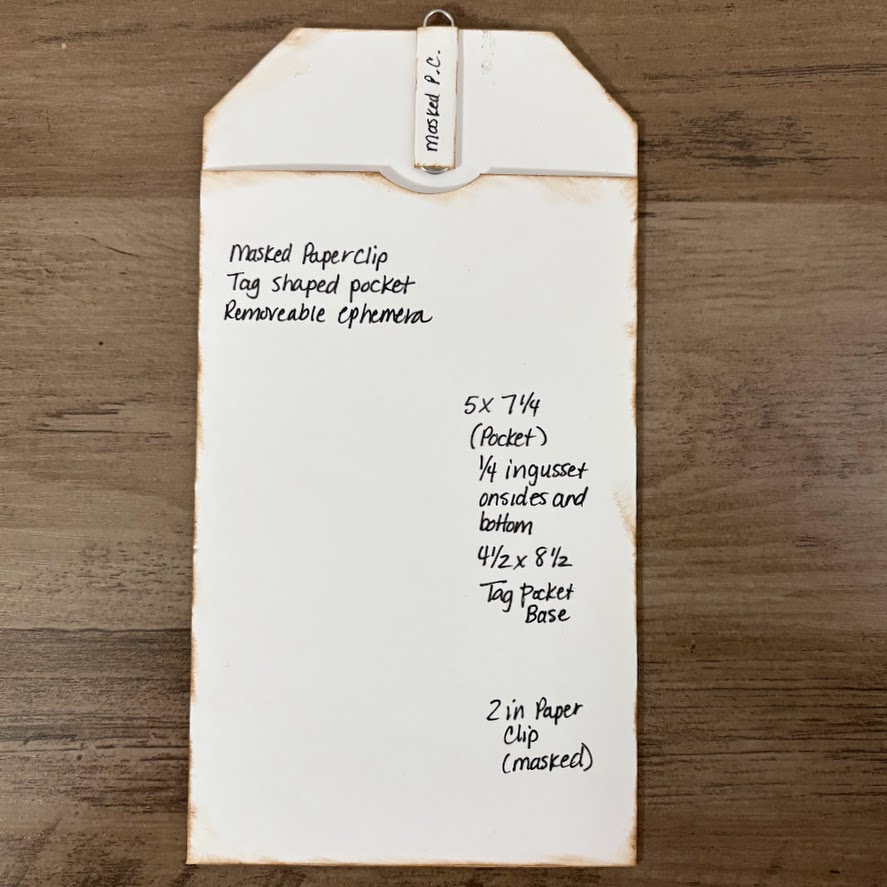 Masked P.C.
Masked Paperclip
Tag shaped pocket
Removeable ephemera
5 x 7 1/4
(Pocket)
1/4 in gusset
on sides and
bottom
4 1/2 x 8 1/2
Tag Pocket
Base
2 in Paper
Clip
(masked)